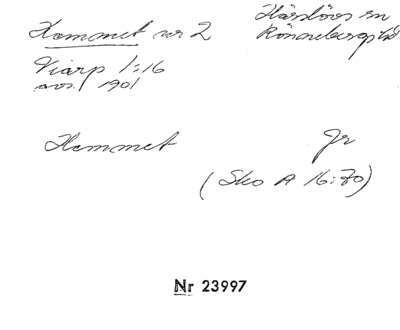 Hemmet nr 2
Härslövs sn
Rönnebergs hd
Viarp 1:16
avs. 1901
Hemmet Jr
(Sko A 16:70)
Nr 23997